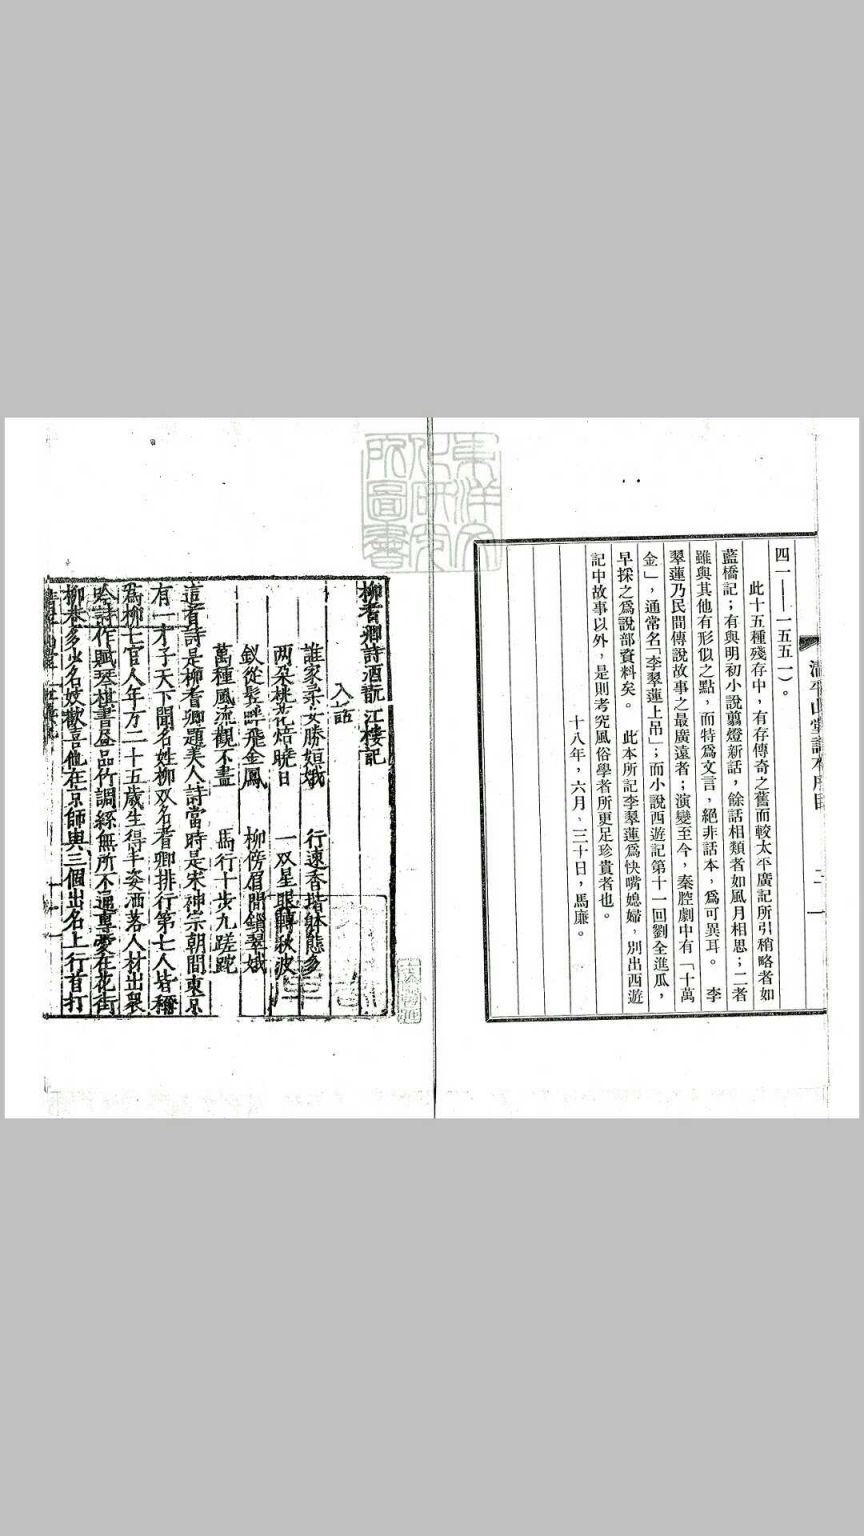 四一——一五五一）。
此十五種殘存中，有存傳奇之舊而較太平廣記所引稍略者如
藍橋記；有與明初小說翦燈新話，餘話相類者如風月相思；二者
雖與其他有形似之點，而特爲文言，絕非話本，爲可異耳。　李
翠蓮乃民間傳說故事之最廣遠者；演變至今，秦腔劇中有「十萬
金」，通常名「李翠蓮上吊」；而小說西遊記第十一回劉全進瓜，
早採之爲說部資料矣。　此本所記李翠蓮爲快嘴媳婦，別出西遊
記中故事以外，是則考究風俗學者所更足珍貴者也。
十八年，六月，三十日，馬廉。
柳耆卿詩酒翫江樓記
入話
誰家柔女勝姮娥　行速香堦躰態多
两朵桃花焙曉日　一双星眼轉秋波
釵從髩畔飛金鳳　柳傍眉間鎖翠娥
萬種風流觀不盡　馬行十步九蹉跎
這首詩是柳耆卿題美人詩當時是宋神宗朝間東京
有一才子天下聞名姓柳双名耆卿排行第七人皆稱
爲柳七官人年方二十五歲生得丰姿洒落人材出衆
吟詩作賦琴棋書畫品竹調絲無所不通專愛在花街
柳巷多少名妓歡喜他在京師與三個出名上行首打
東洋文化研究所圖書